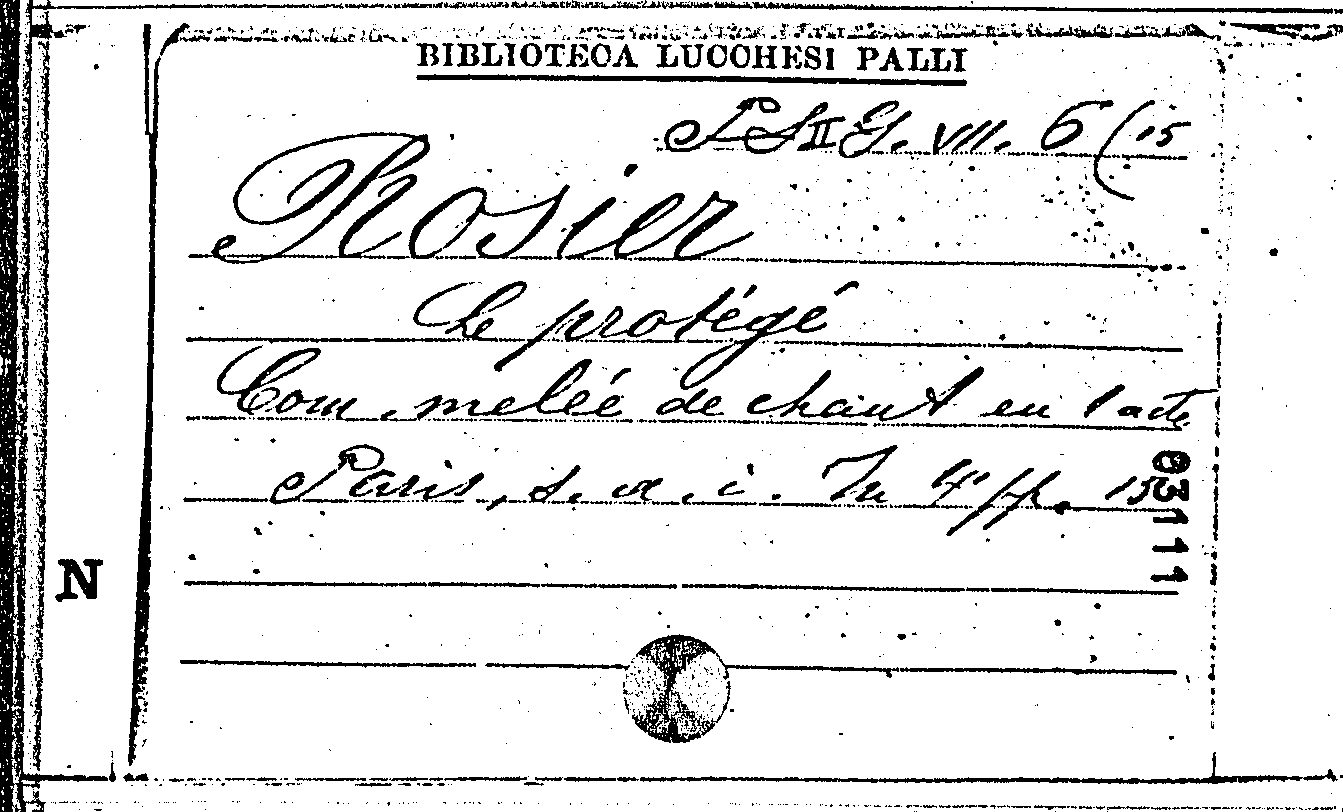 BIBLIOTECA LUCCHESI PALLI
VII. 6 (15
Rosier
Le protégé
Com. melée de chant en 1 acte
Paris, s. a. i. In 4° pp. 15
03111
N